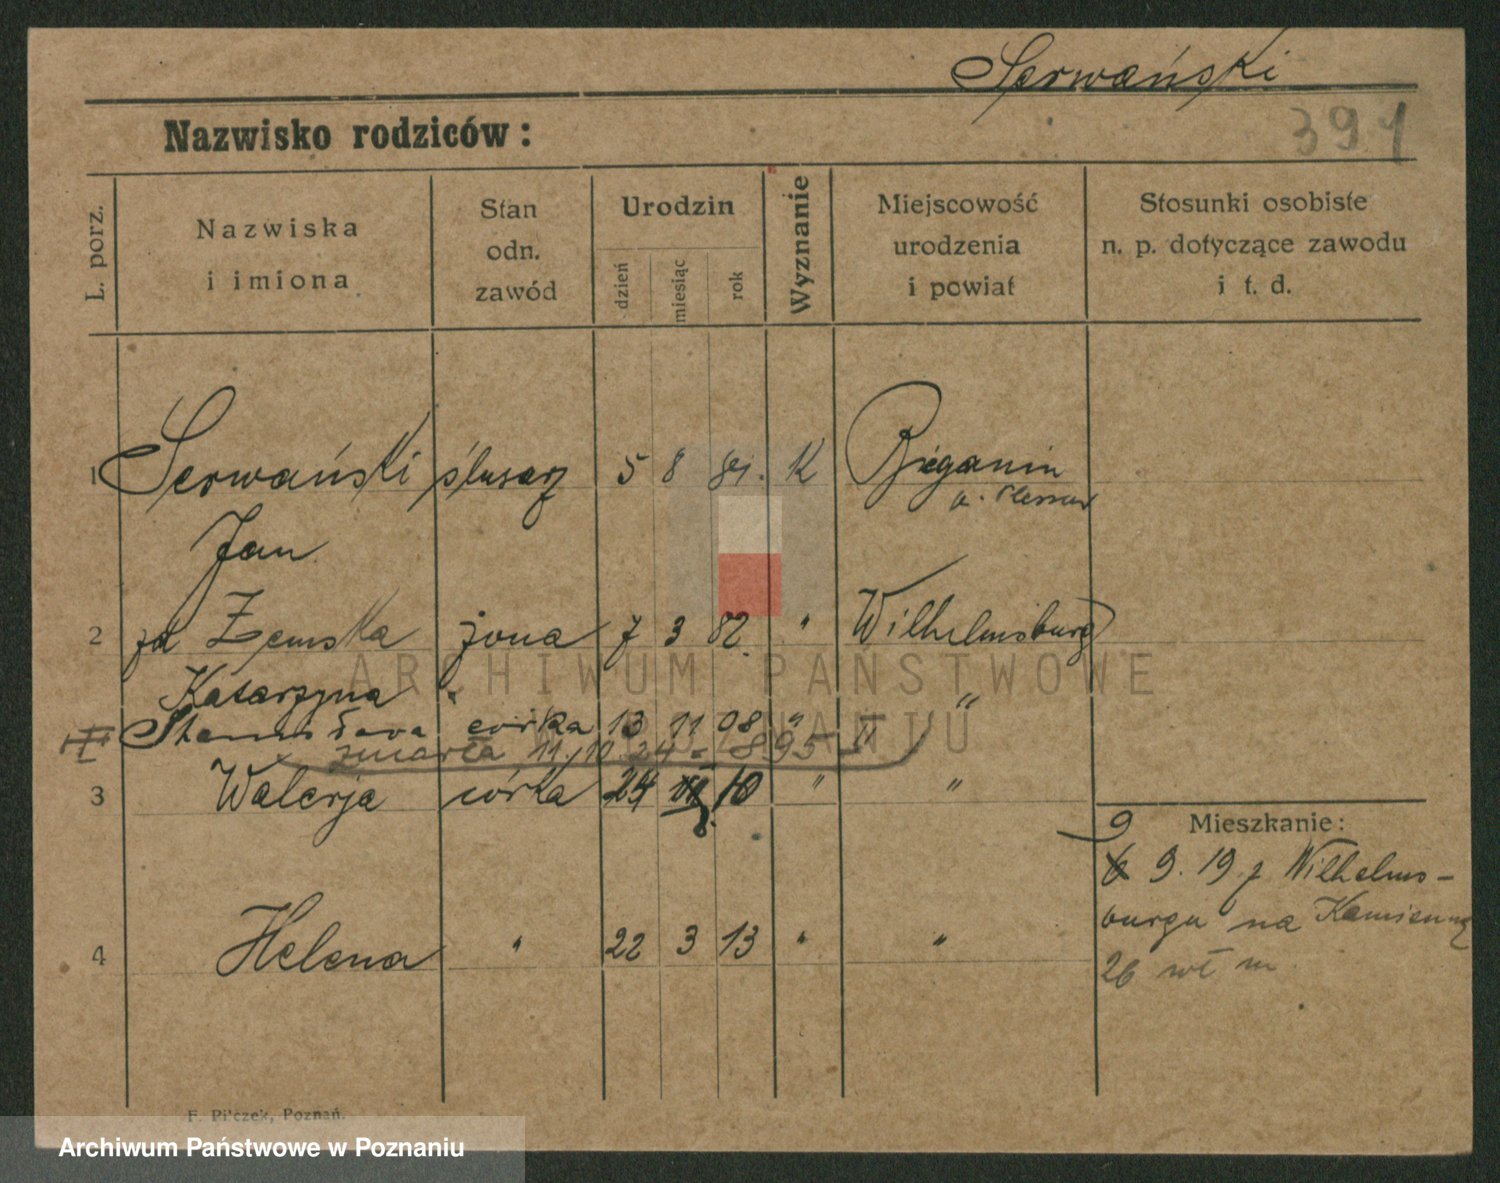 Serwański
391
Nazwisko rodziców:
L. porz.
Nazwiska
i imiona
Stan
odn.
zawód
Urodzin
dzień
miesiąc
rok
Wyznanie
Miejscowość
urodzenia
i powiat
Stosunki osobiste
n. p. dotyczące zawodu
i t. d.
1 Serwański ślusarz 5 8 81. K Bieganin
p. Plessen
Jan
2 zd Zemska żona 7 3 82. " Wilhelmsburg
Katarzyna "
Stanisława córka 13 11 08 " "
zmarła 11/10.24 = 895 II
3 Walerja córka 24 8. 10 " "
4 Helena " 22 3 13 " "
Mieszkanie:
9
9. 19 z Wilhelms-
burga na Kamienną
26 wł m
F. Pilczek, Poznań.
ARCHIWUM PAŃSTWOWE
W POZNANIU
Archiwum Państwowe w Poznaniu